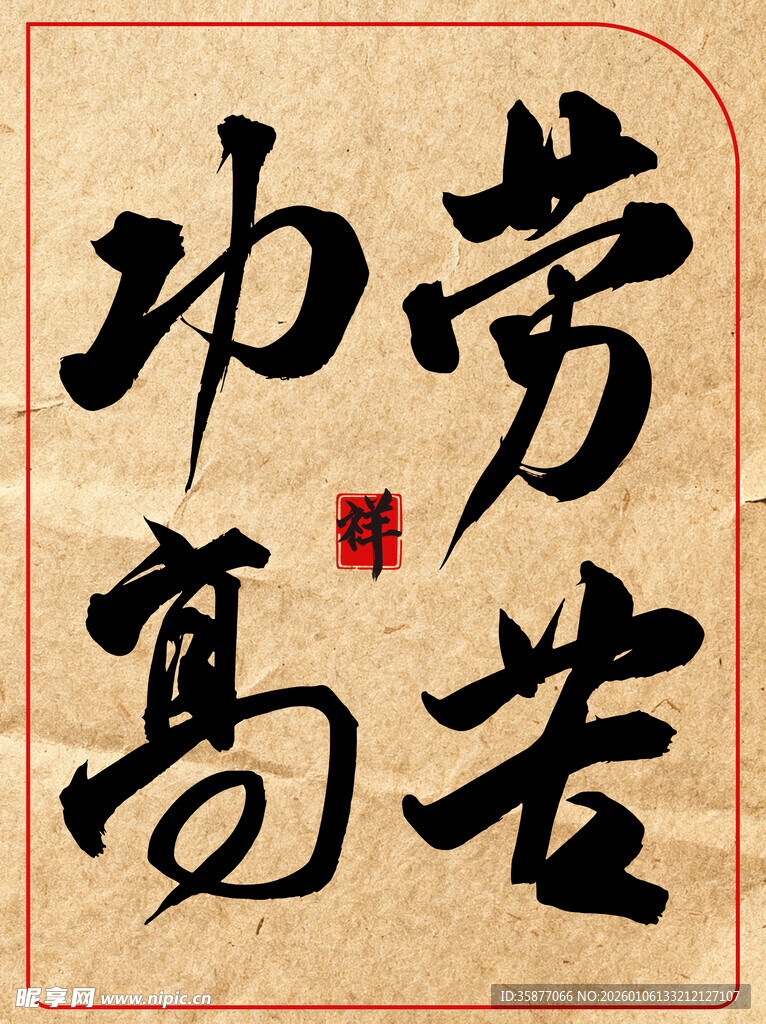 劳苦
功高
祥
昵享网 www.nipic.cn
ID:35877066 NO:20260106133212127107